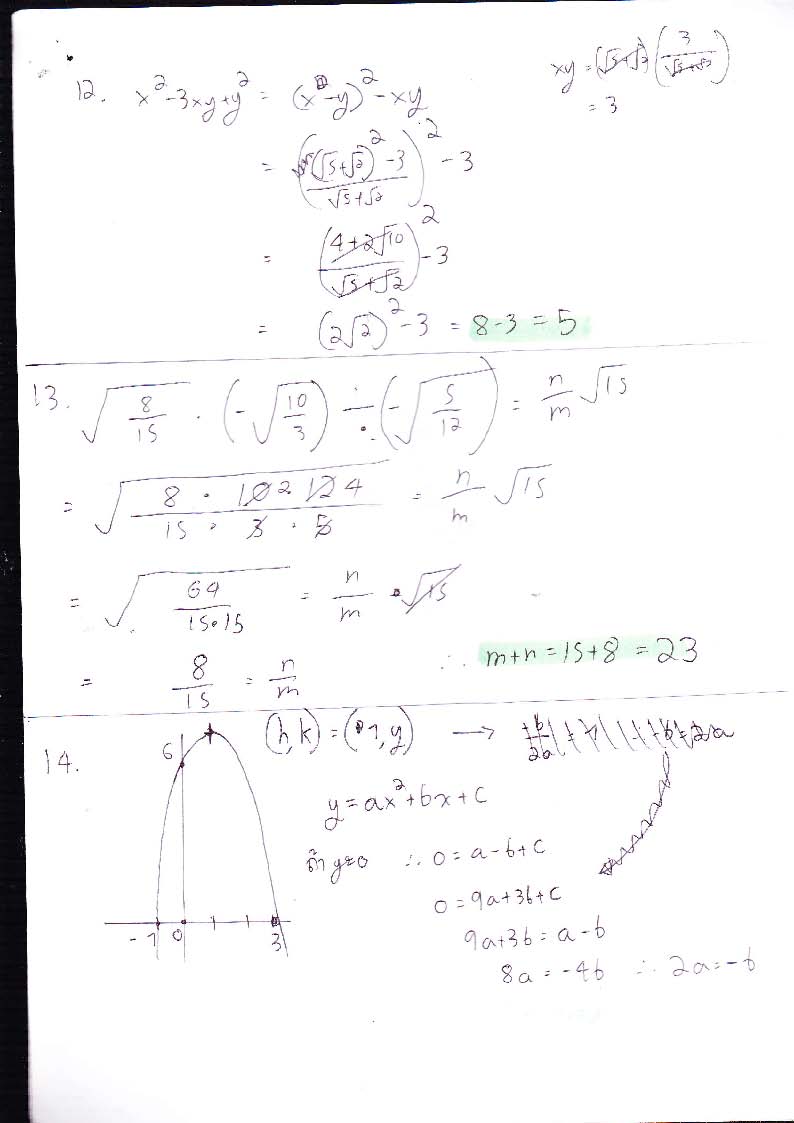 12. x² - 3xy + y² = (x - y)² - xy
xy = (√5+√2)(3/(√5+√2))
= 3
= (((√5+√2)² - 3)/(√5+√2))² - 3
= ((4+2√10)/(√5+√2))² - 3
= (2√2)² - 3 = 8-3 = 5
13. √(8/15) · (-√(10/3)) ÷ (-√(5/12)) = n/m √15
= √((8 · 10 2 12 4)/(15 · 3 · 5)) = n/m √15
= √(64/(15·15)) = n/m · √15
= 8/15 = n/m ∴ m+n = 15+8 = 23
14. (h,k) = (1,y) →
6
-1 0 3
y = ax²+bx+c
ถ้า y=0 ∴ 0 = a-b+c
0 = 9a+3b+c
9a+3b = a-b
8a = -4b ∴ 2a = -b